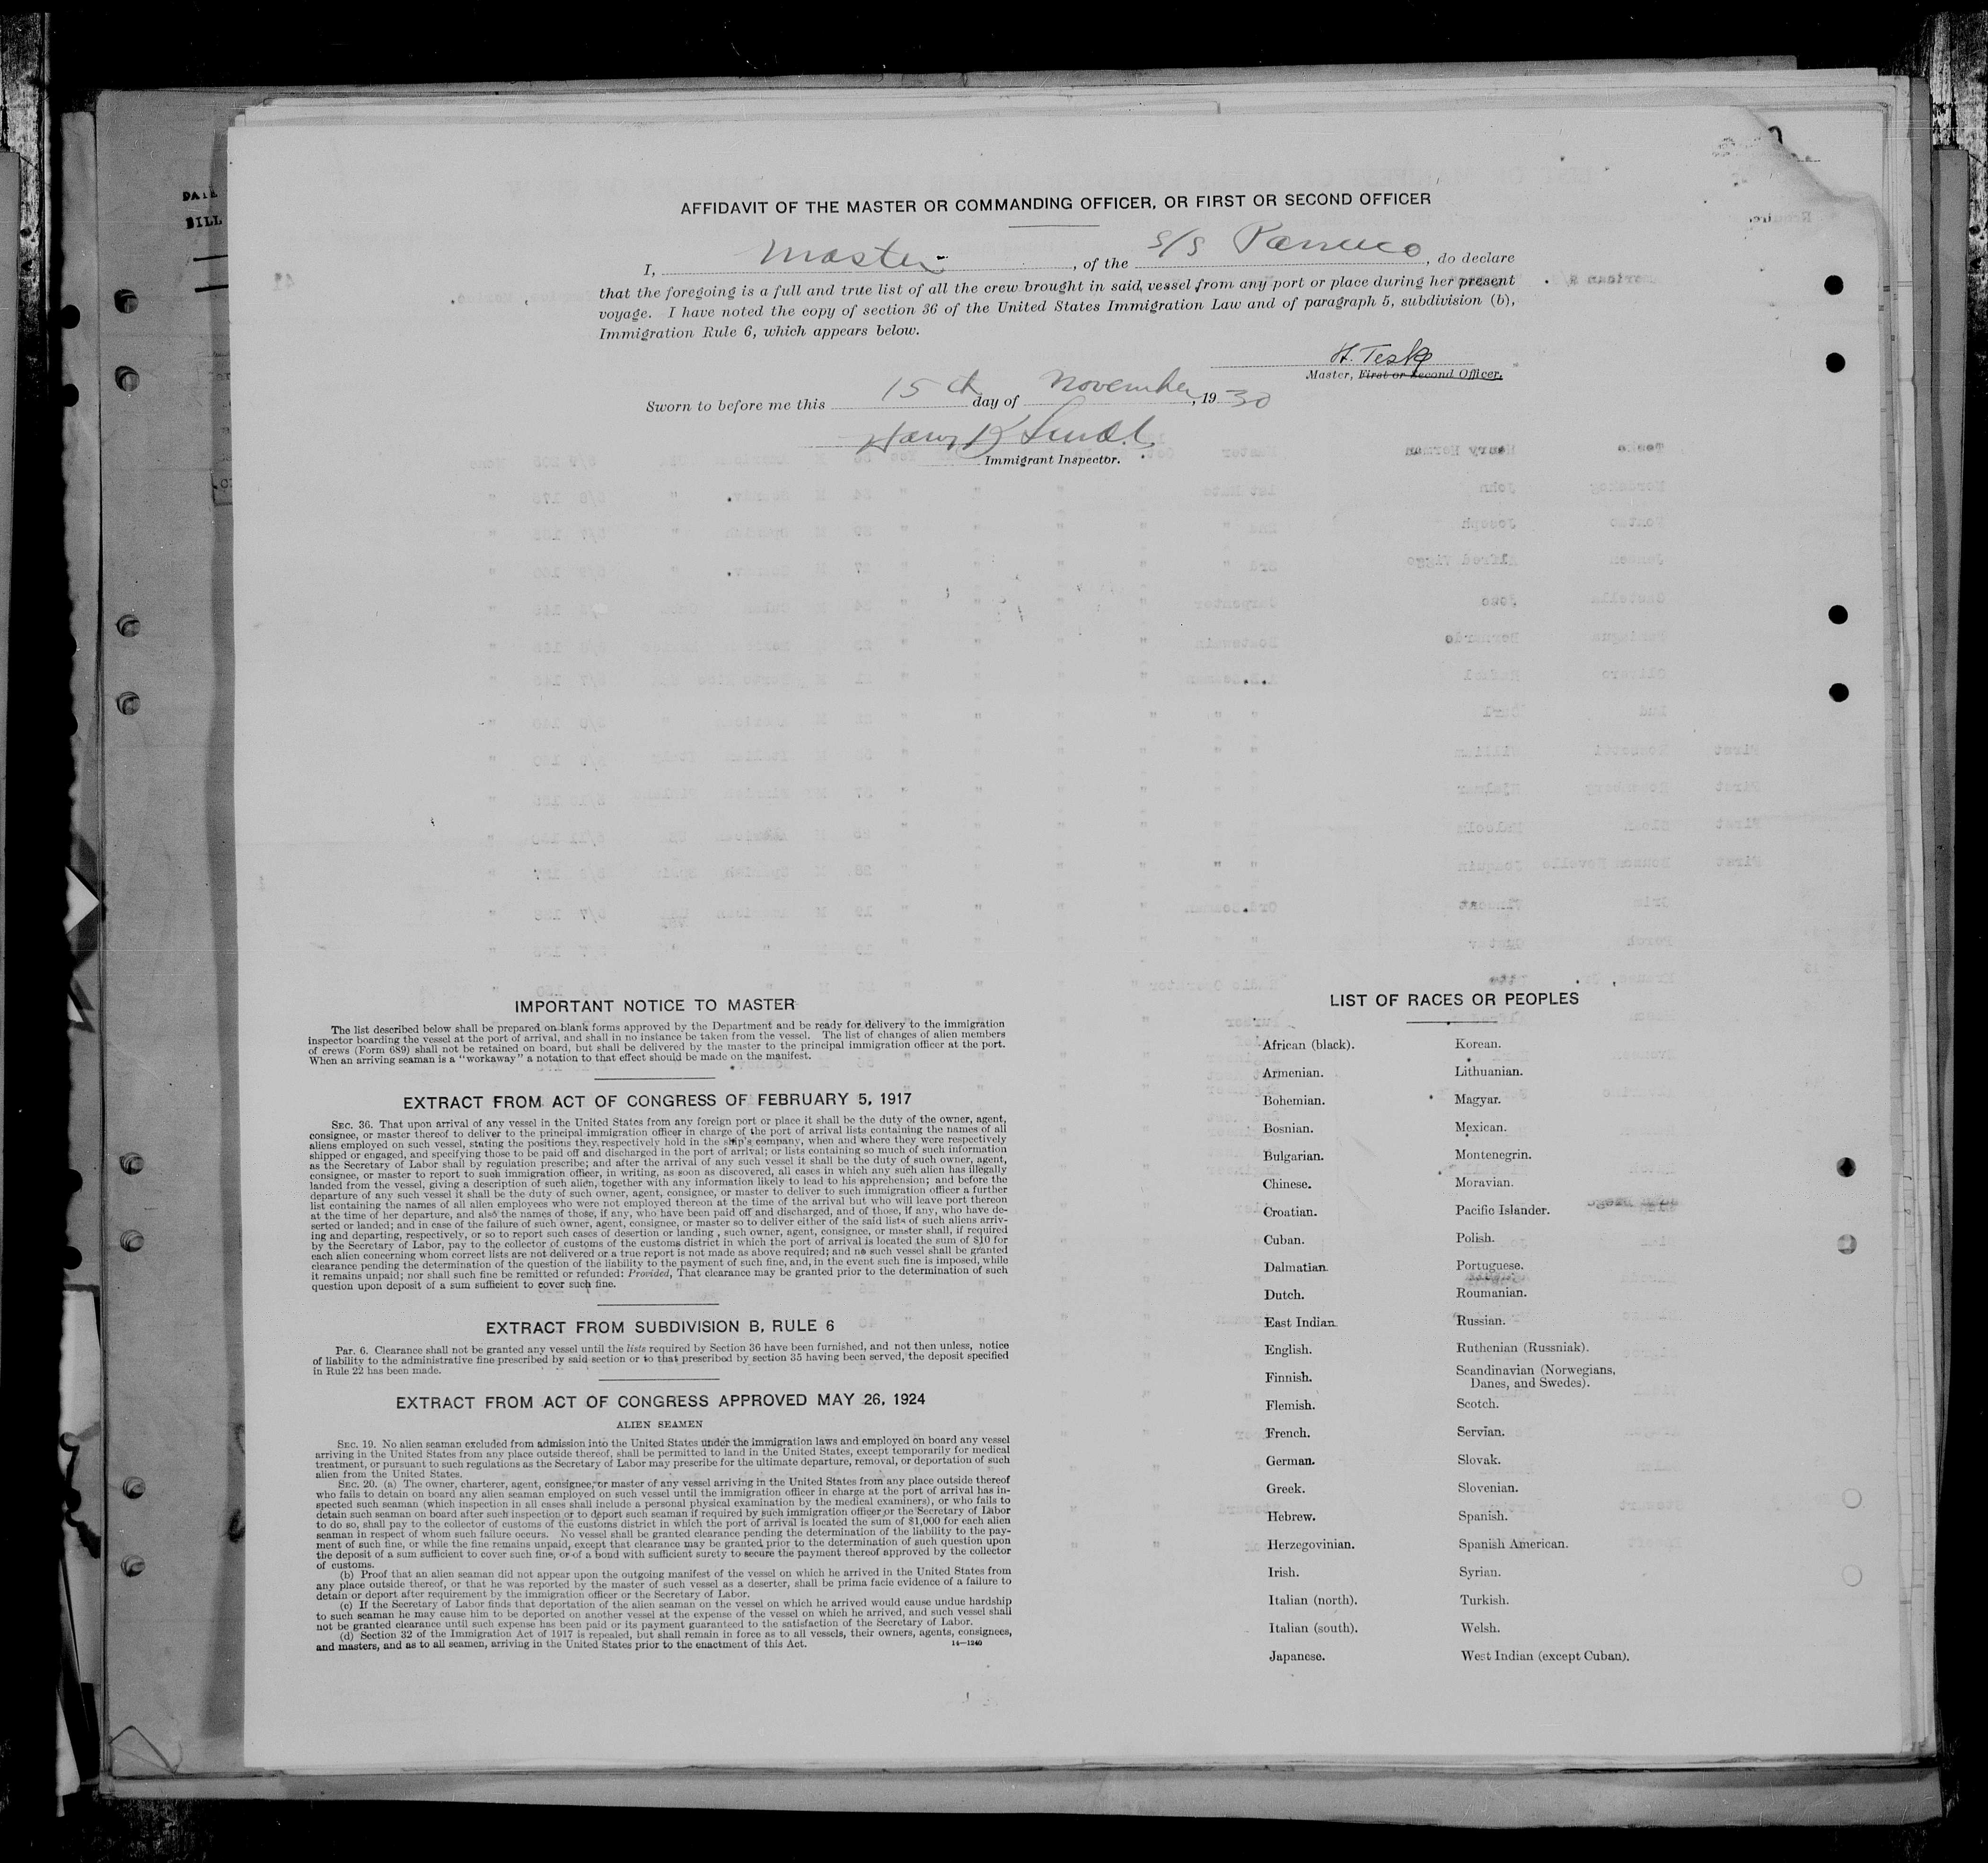 DATE
BILL
AFFIDAVIT OF THE MASTER OR COMMANDING OFFICER, OR FIRST OR SECOND OFFICER
I, Master, of the S/S Panuco, do declare
that the foregoing is a full and true list of all the crew brought in said vessel from any port or place during her present
voyage. I have noted the copy of section 36 of the United States Immigration Law and of paragraph 5, subdivision (b),
Immigration Rule 6, which appears below.
H. Teske
Master, First or Second Officer.
Sworn to before me this 15th day of November, 1930
Immigrant Inspector.
IMPORTANT NOTICE TO MASTER
The list described below shall be prepared on blank forms approved by the Department and be ready for delivery to the immigration
inspector boarding the vessel at the port of arrival, and shall in no instance be taken from the vessel. The list of changes of alien members
of crews (Form 689) shall not be retained on board, but shall be delivered by the master to the principal immigration officer at the port.
When an arriving seaman is a "workaway" a notation to that effect should be made on the manifest.
EXTRACT FROM ACT OF CONGRESS OF FEBRUARY 5, 1917
SEC. 36. That upon arrival of any vessel in the United States from any foreign port or place it shall be the duty of the owner, agent,
consignee, or master thereof to deliver to the principal immigration officer in charge of the port of arrival lists containing the names of all
aliens employed on such vessel, stating the positions they respectively hold in the ship's company, when and where they were respectively
shipped or engaged, and specifying those to be paid off and discharged in the port of arrival; or lists containing so much of such information
as the Secretary of Labor shall by regulation prescribe; and after the arrival of any such vessel it shall be the duty of such owner, agent,
consignee, or master to report to such immigration officer, in writing, as soon as discovered, all cases in which any such alien has illegally
landed from the vessel, giving a description of such alien, together with any information likely to lead to his apprehension; and before the
departure of any such vessel it shall be the duty of such owner, agent, consignee, or master to deliver to such immigration officer a further
list containing the names of all alien employees who were not employed thereon at the time of the arrival but who will leave port thereon
at the time of her departure, and also the names of those, if any, who have been paid off and discharged, and of those, if any, who have de-
serted or landed; and in case of the failure of such owner, agent, consignee, or master so to deliver either of the said lists of such aliens arriv-
ing and departing, respectively, or so to report such cases of desertion or landing, such owner, agent, consignee, or master shall, if required
by the Secretary of Labor, pay to the collector of customs of the customs district in which the port of arrival is located the sum of $10 for
each alien concerning whom correct lists are not delivered or a true report is not made as above required; and no such vessel shall be granted
clearance pending the determination of the question of the liability to the payment of such fine, and, in the event such fine is imposed, while
it remains unpaid; nor shall such fine be remitted or refunded: Provided, That clearance may be granted prior to the determination of such
question upon deposit of a sum sufficient to cover such fine.
EXTRACT FROM SUBDIVISION B, RULE 6
Par. 6. Clearance shall not be granted any vessel until the lists required by Section 36 have been furnished, and not then unless, notice
of liability to the administrative fine prescribed by said section or to that prescribed by section 35 having been served, the deposit specified
in Rule 22 has been made.
EXTRACT FROM ACT OF CONGRESS APPROVED MAY 26, 1924
ALIEN SEAMEN
SEC. 19. No alien seaman excluded from admission into the United States under the immigration laws and employed on board any vessel
arriving in the United States from any place outside thereof, shall be permitted to land in the United States, except temporarily for medical
treatment, or pursuant to such regulations as the Secretary of Labor may prescribe for the ultimate departure, removal, or deportation of such
alien from the United States.
SEC. 20. (a) The owner, charterer, agent, consignee, or master of any vessel arriving in the United States from any place outside thereof
who fails to detain on board any alien seaman employed on such vessel until the immigration officer in charge at the port of arrival has in-
spected such seaman (which inspection in all cases shall include a personal physical examination by the medical examiners), or who fails to
detain such seaman on board after such inspection or to deport such seaman if required by such immigration officer or the Secretary of Labor
to do so, shall pay to the collector of customs of the customs district in which the port of arrival is located the sum of $1,000 for each alien
seaman in respect of whom such failure occurs. No vessel shall be granted clearance pending the determination of the liability to the pay-
ment of such fine, or while the fine remains unpaid, except that clearance may be granted prior to the determination of such question upon
the deposit of a sum sufficient to cover such fine, or of a bond with sufficient surety to secure the payment thereof approved by the collector
of customs.
(b) Proof that an alien seaman did not appear upon the outgoing manifest of the vessel on which he arrived in the United States from
any place outside thereof, or that he was reported by the master of such vessel as a deserter, shall be prima facie evidence of a failure to
detain or deport after requirement by the immigration officer or the Secretary of Labor.
(c) If the Secretary of Labor finds that deportation of the alien seaman on the vessel on which he arrived would cause undue hardship
to such seaman he may cause him to be deported on another vessel at the expense of the vessel on which he arrived, and such vessel shall
not be granted clearance until such expense has been paid or its payment guaranteed to the satisfaction of the Secretary of Labor.
(d) Section 32 of the Immigration Act of 1917 is repealed, but shall remain in force as to all vessels, their owners, agents, consignees,
and masters, and as to all seamen, arriving in the United States prior to the enactment of this Act.
14—1240
LIST OF RACES OR PEOPLES
African (black).
Armenian.
Bohemian.
Bosnian.
Bulgarian.
Chinese.
Croatian.
Cuban.
Dalmatian.
Dutch.
East Indian.
English.
Finnish.
Flemish.
French.
German.
Greek.
Hebrew.
Herzegovinian.
Irish.
Italian (north).
Italian (south).
Japanese.
Korean.
Lithuanian.
Magyar.
Mexican.
Montenegrin.
Moravian.
Pacific Islander.
Polish.
Portuguese.
Roumanian.
Russian.
Ruthenian (Russniak).
Scandinavian (Norwegians,
Danes, and Swedes).
Scotch.
Servian.
Slovak.
Slovenian.
Spanish.
Spanish American.
Syrian.
Turkish.
Welsh.
West Indian (except Cuban).